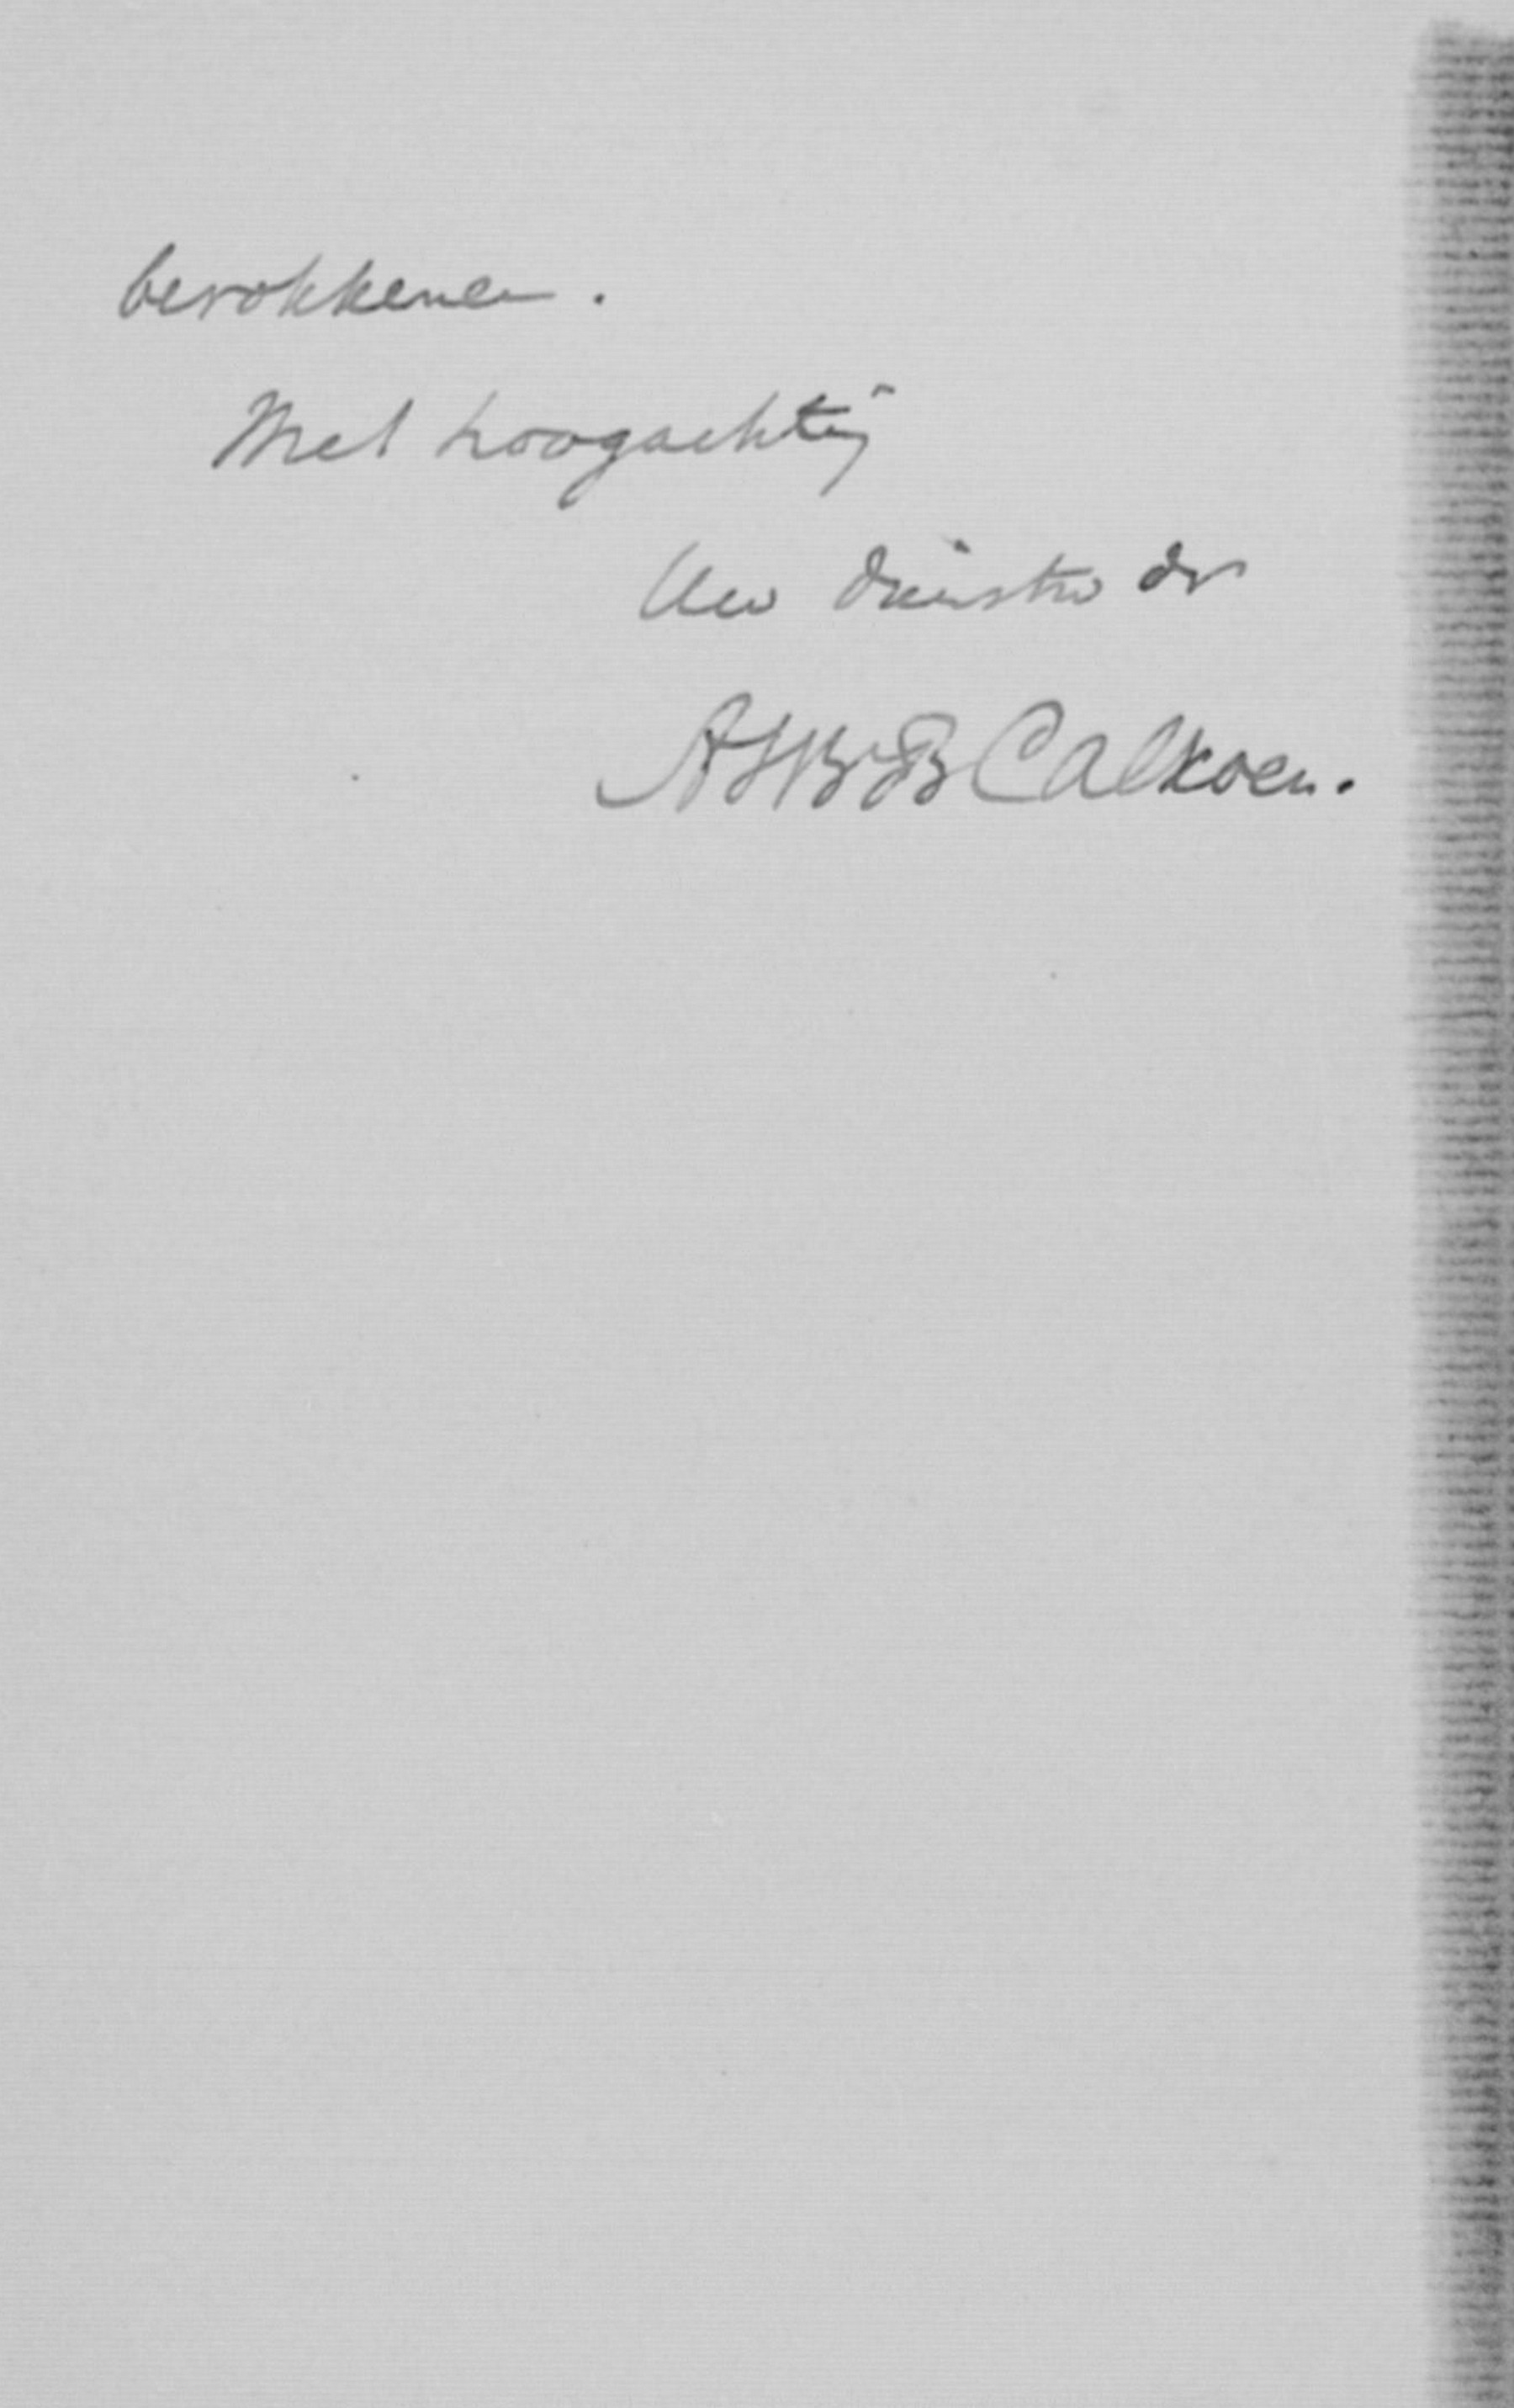 berokkenen.
Met hoogachting
Uw dienstw dr
Calkoen.